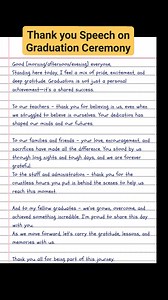 Thank you Speech on
Graduation Ceremony
Good [morning/afternoon/evening] everyone,
Standing here today, I feel a mix of pride, excitement, and
deep gratitude. Graduation is not just a personal
achievement—it's a shared success.
To our teachers – thank you for believing in us, even when
we struggled to believe in ourselves. Your dedication has
shaped our minds and our futures.
To our families and friends – your love, encouragement, and
sacrifices have made all the difference. You stood by us
through long nights and tough days, and we are forever
grateful.
To the staff and administration – thank you for the
countless hours you put in behind the scenes to help us
reach this moment.
And to my fellow graduates – we've grown, overcome, and
achieved something incredible. I'm proud to share this day
with you.
As we move forward, let's carry the gratitude, lessons, and
memories with us.
Thank you all for being part of this journey.